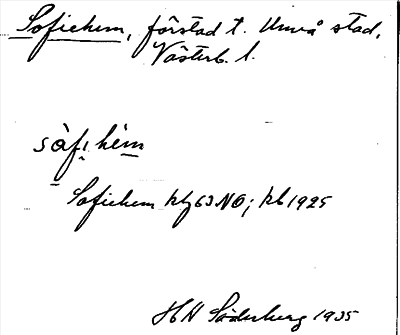 Sofiehem, förstad t. Umeå stad,
Västerb. l.
sàfıhèm
Sofiehem kbl 63 NO; kb 1925
HN Söderberg 1935